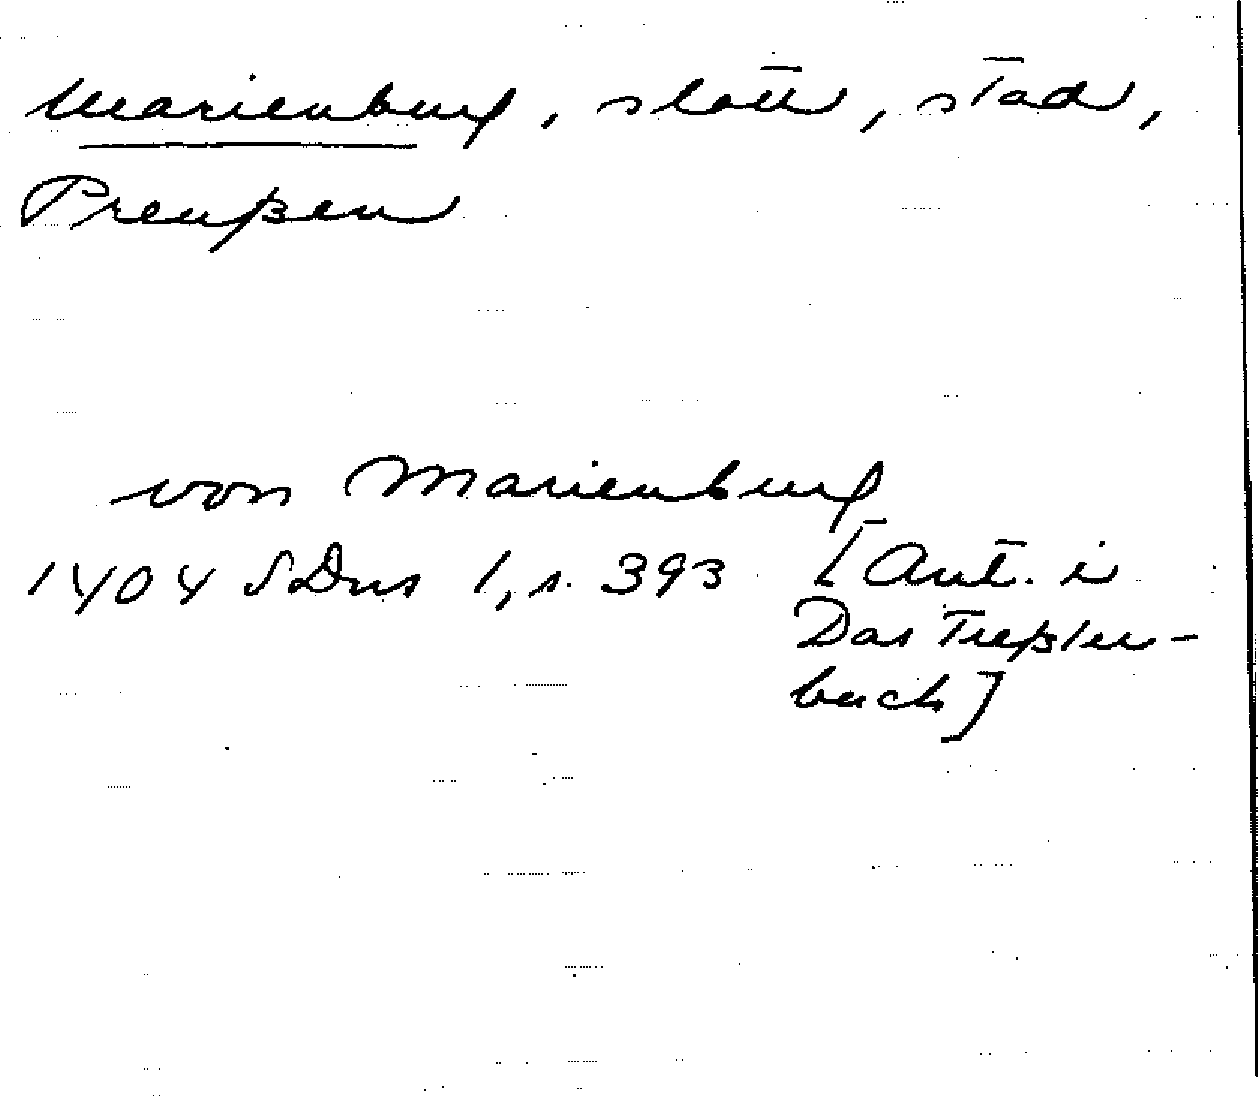 Marienburg, slott, stad,
Preußen
von Marienburg
1404 SDns 1, s. 393 [Ant. i
Das Treßler-
buch]